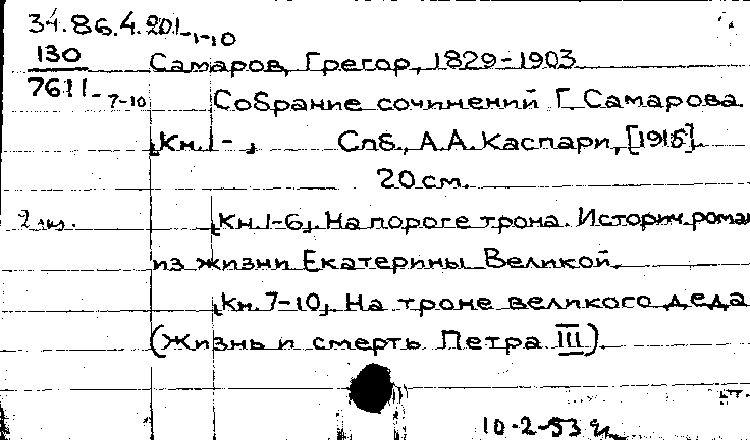 34.86.4.201-1-10
130
Самаров, Грегор, 1829-1903
7611-7-10
Собрание сочинений Г. Самарова.
[Кн. 1- ] Спб., А.А. Каспари, [1915].
20 см.
2 экз.
[Кн. 1-6]. На пороге трона. Историч. роман
из жизни Екатерины Великой.
[Кн. 7-10]. На троне великого деда
(Жизнь и смерть Петра III).
10-2-53